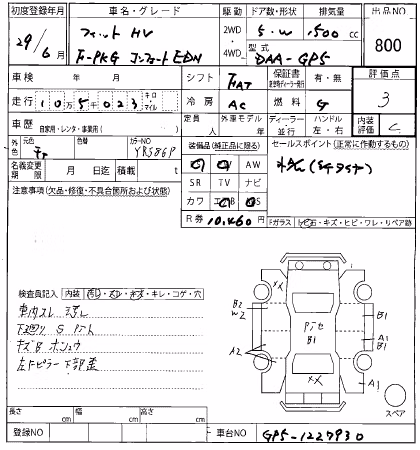 初度登録年月 車名・グレード 駆動 ドア数・形状 排気量 出品NO
29年 6月 フィット HV 2WD 4WD 5・W 1500 cc 800
F-PKG コンフォートEDN 型式 DAA-GP5
車検 年 月 シフト FAT 保証書 有・無 評価点
走行 10万5千023 キロ マイル 冷房 AC 燃料 G 3
車歴 自家用・レンタ・事業用( ) 定員 人 外車モデル 年 ディーラー 並行 ハンドル 左・右 内装評価 C
外色 元色 色替 カラーNO YR586P 装備品(純正品に限る) セールスポイント(正常に作動するもの)
名義変更期限 月 日迄 積載 t AW
注意事項(欠品・修復・不具合箇所および状態) SR TV ナビ
カワ
R券 10,460円 Fガラス キズ・ヒビ・ワレ・リペア跡
検査員記入 内装 キレ・コゲ・穴
車内スレ ヨゴレ
下廻り S
キズB
左Fピラー下部歪
B2 W2 A2 B1 A1 B1 A1
B1
スペア
長さ cm 幅 cm 高さ cm
登録NO 車台NO GP5-1227930